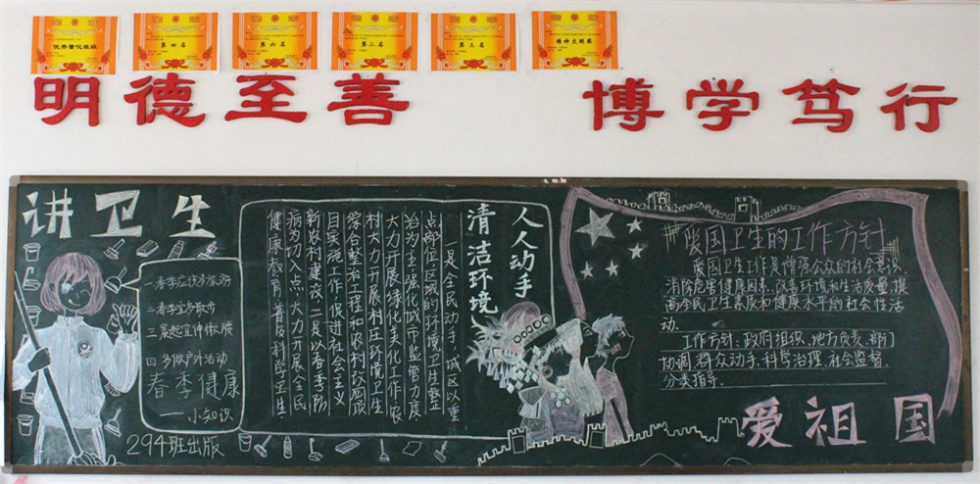 优秀量化班级
第四名
第六名
第二名
第三名
精神文明奖
明德至善
博学笃行
讲卫生
一春季应快多旅游
二春季宜多散步
三晨起宜伸懒腰
四多做户外活动
春季健康
——小知识
294班出版
人人动手
清洁环境
一是全民动手,城区以重
点部位区域的环境卫生整
治为主,强化城市监管力度,
大力开展绿化美化工作,农
村大力开展村庄环境卫生
综合整治工程和农村改厕
项目实施工作,促进社会主义
新农村建设,二是以春季防
病为切入点,大力开展全民
健康教育,普及科学卫生
爱国卫生的工作方针
爱国卫生工作是增强公众的社会意识,
消除危害健康因素,改善环境和生活质量,提
高全民卫生素质和健康水平的社会性活
动.
工作方针:政府组织、地方负责、部门
协调、群众动手、科学治理、社会监督、
分类指导.
爱祖国